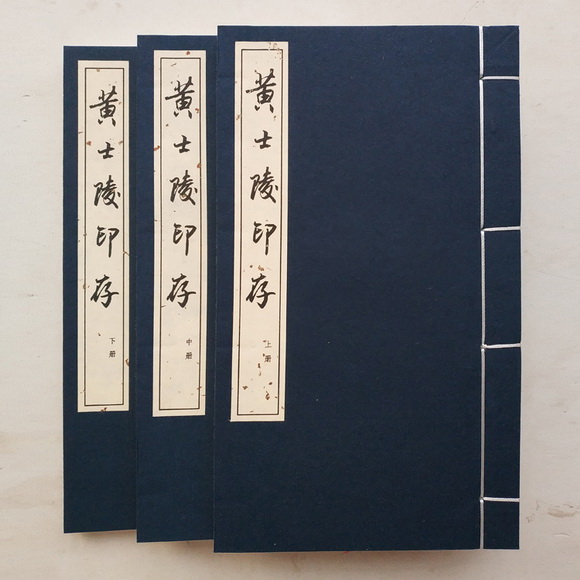 黄士陵印存
上册
黄士陵印存
中册
黄士陵印存
下册